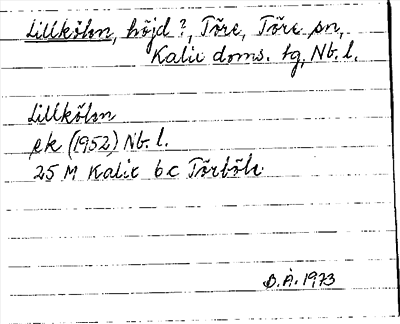 Lillkölen, höjd?, Töre, Töre sn,
Kalix doms. tg, Nb. l.
Lillkölen
ek (1952) Nb. l.
25 M Kalix 6c Törböle
B.Å. 1973